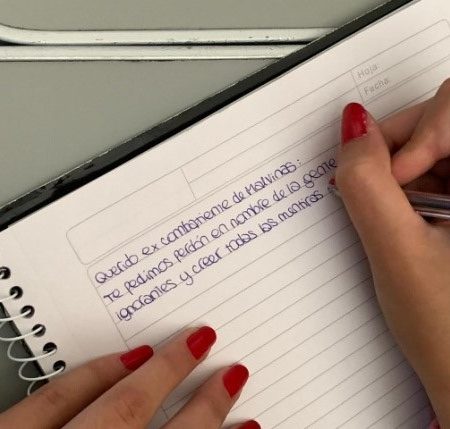 Hoja
Fecha
Querido ex combatiente de Malvinas:
Te pedimos perdón en nombre de la gente
ignorantes y creer todas las mentiras